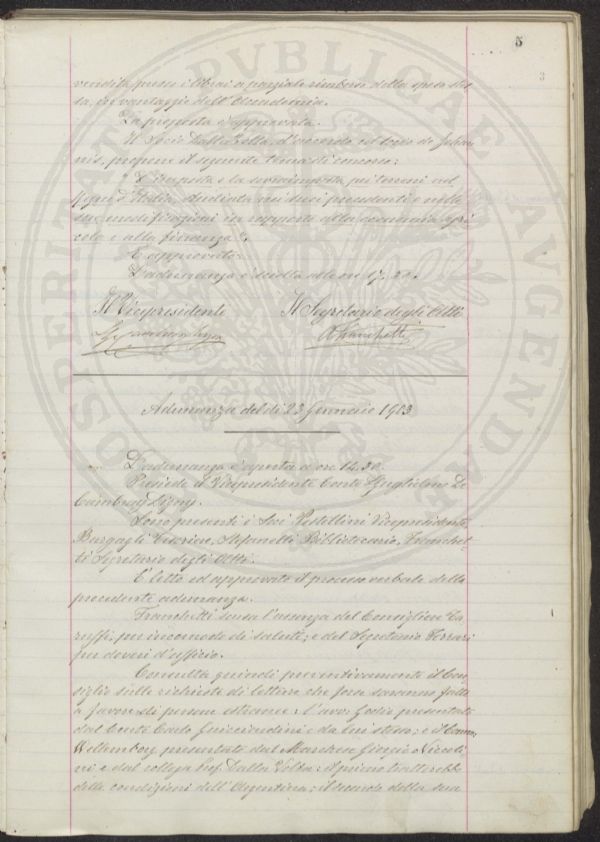 5
3
vendita presso i librai a parziale rimborso della spesa stes-
sa, a vantaggio dell'Accademia.
La proposta è approvata.
Il Socio Dalla Volta, d'accordo col socio de Johan-
nis, propone il seguente tema di concorso:
"L'imposta e la sovraimposta sui terreni nel
Regno d'Italia, studiata nei suoi precedenti e nelle
sue modificazioni in rapporto alla economia agri-
cola e alla finanza".
È approvato.
L'adunanza è sciolta alle ore 17.
Il Vicepresidente
Il Segretario degli Atti
A Franchetti
Adunanza del dì 23 Gennaio 1903
L'adunanza è aperta a ore 14.30.
Presiede il Vicepresidente Conte Guglielmo De
Cambray Digny.
Sono presenti i Soci Pestellini Vicepresidente,
Bargagli Tesoriere, Stefanelli Bibliotecario, Franchet-
ti Segretario degli Atti.
È letto ed approvato il processo verbale della
precedente adunanza.
Franchetti scusa l'assenza del Consigliere Ta-
ruffi, per incomodo di salute; e del Segretario Ferrari
per doveri d'ufficio.
Consulta quindi preventivamente il Con-
siglio sulle richieste di letture che forse saranno fatte
a favore di persone estranee: l'avv. Godio presentato
dal Conte Carlo Guicciardini e da lui stesso; e il Comm.
Wollemborg presentato dal Marchese Giorgio Niccoli-
ni e dal collega Prof. Dalla Volta: il primo tratterebbe
delle condizioni dell'Argentina; il secondo della sua
PROSPERITATI PUBLICAE AUGENDAE